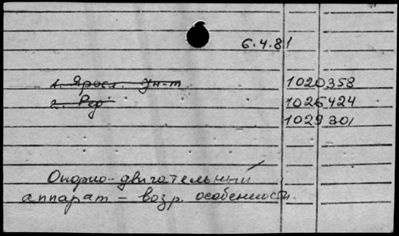 6.4.81
1. Яросл. Ун-т 1020358
2. Ред 1026424
1029301
Опорно-двигательный
аппарат – возр. особенности.